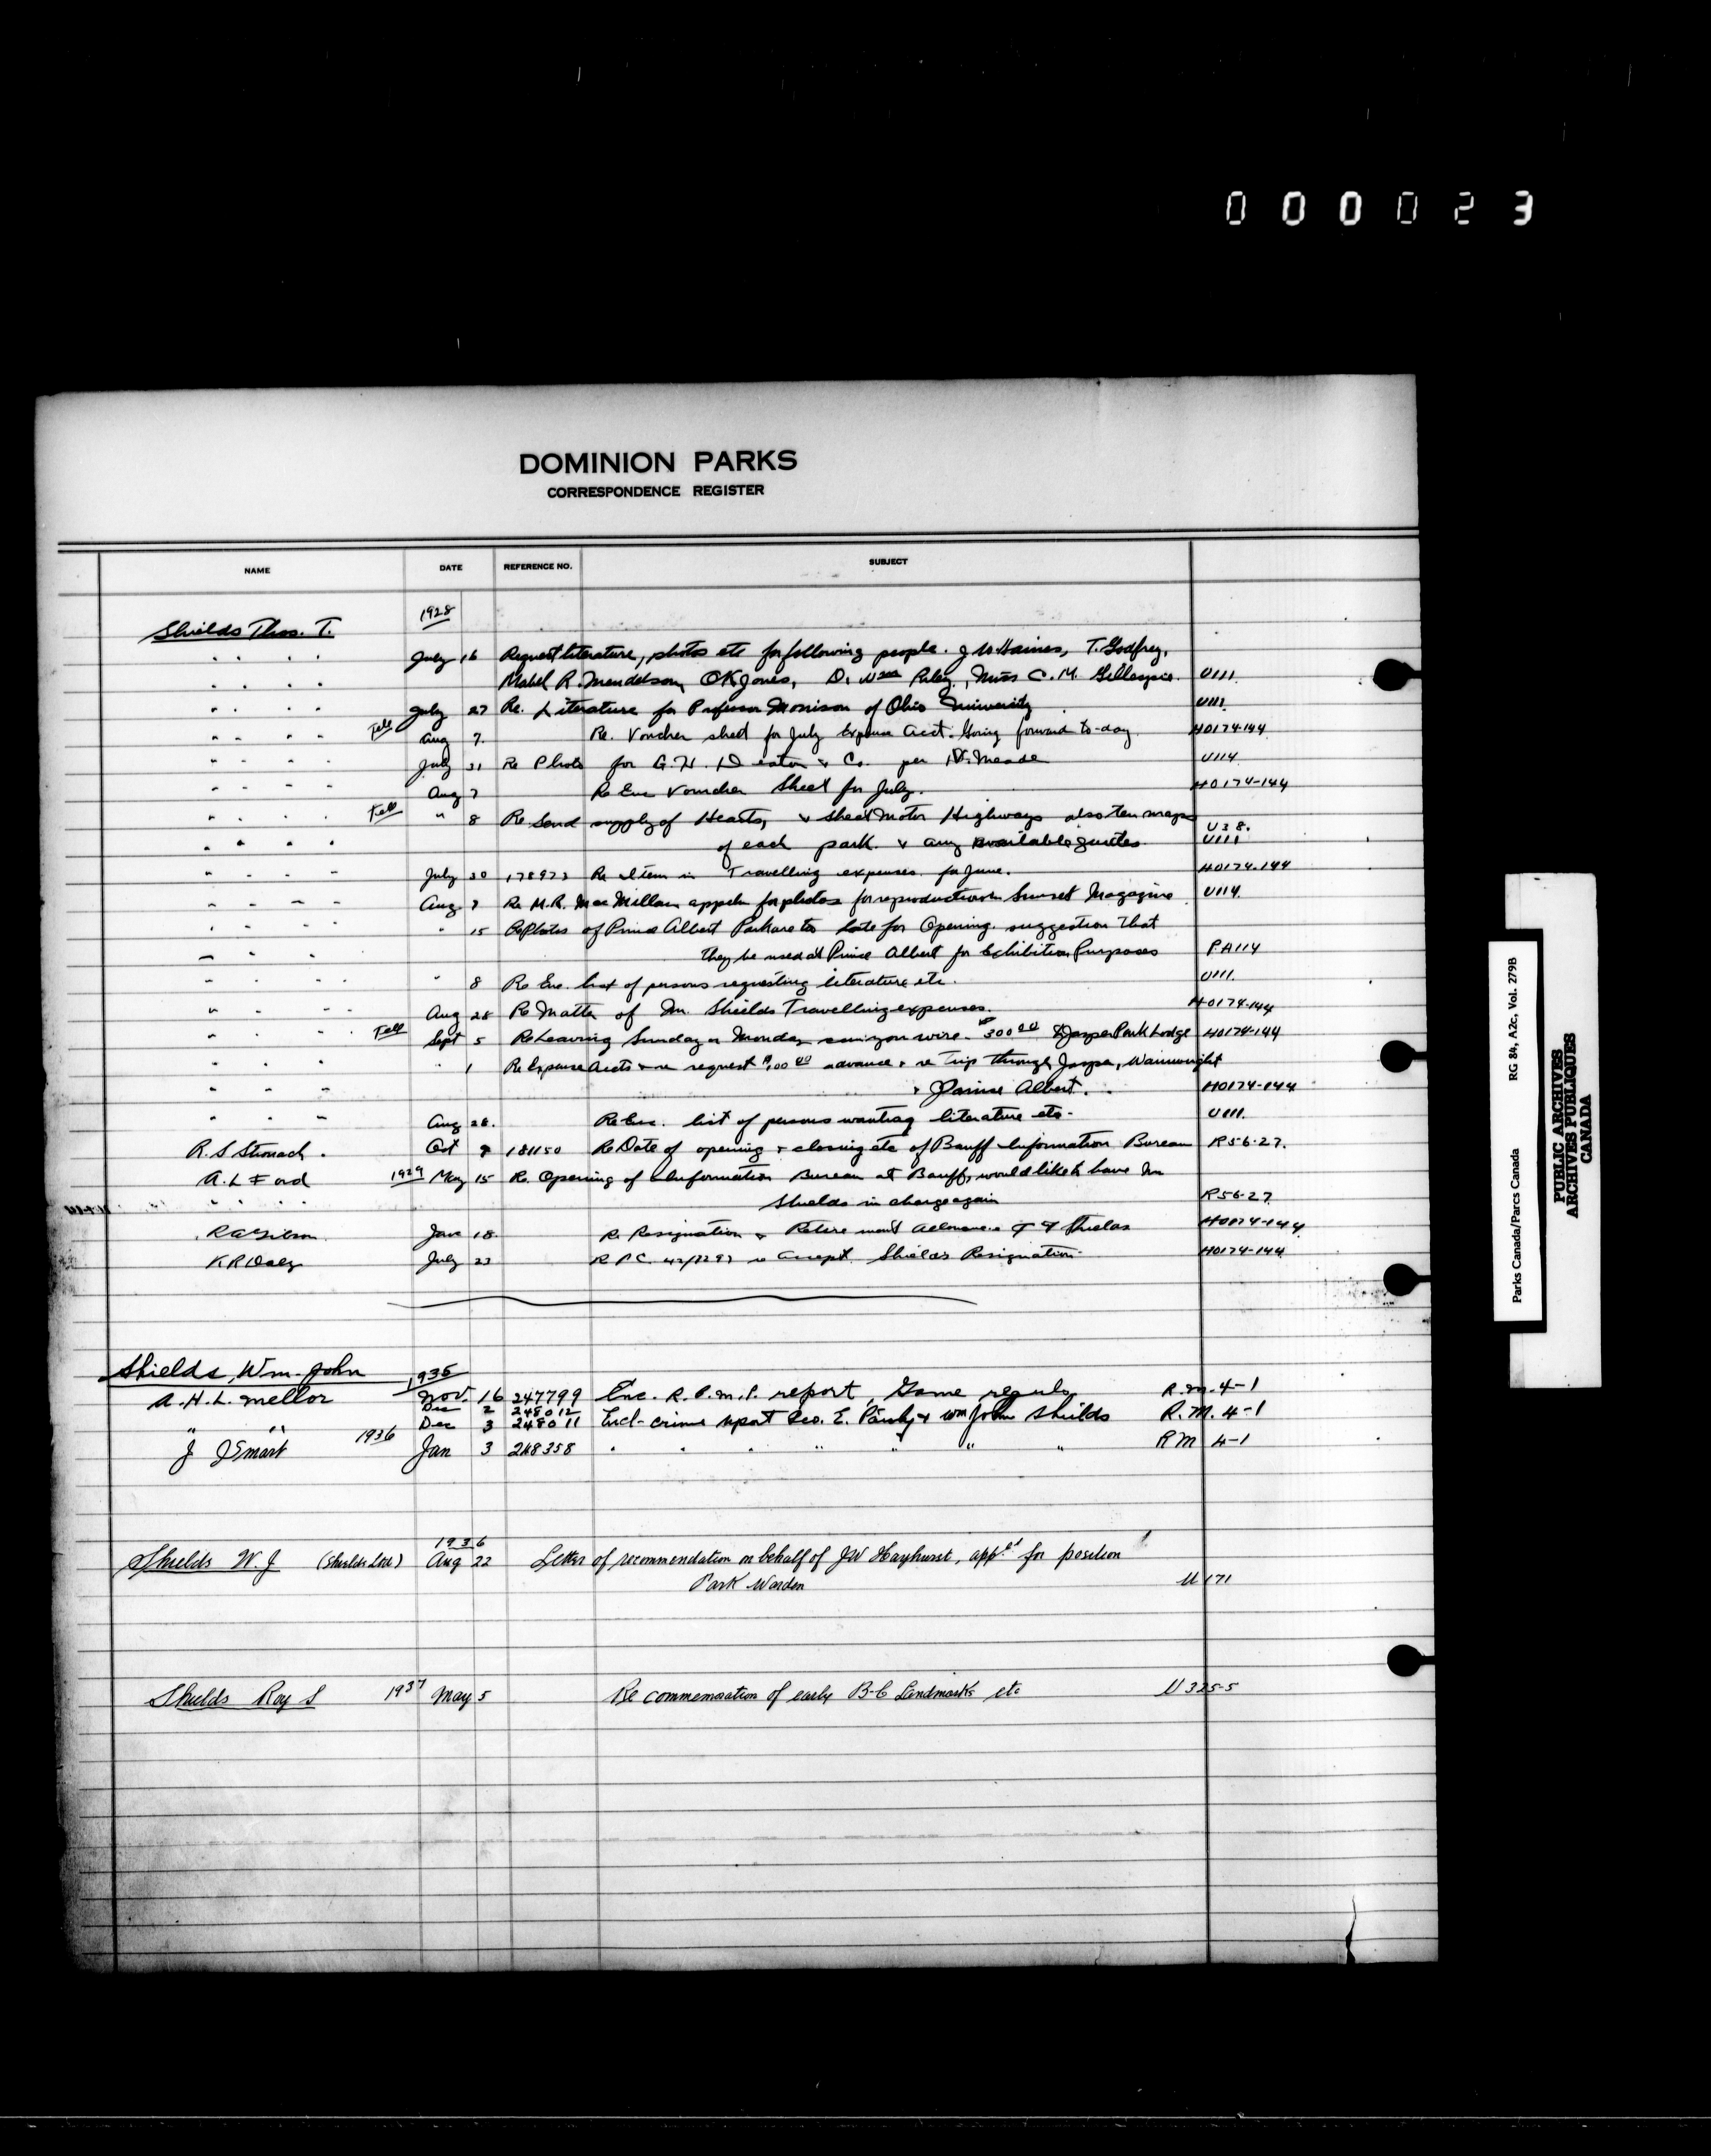 000023
DOMINION PARKS
CORRESPONDENCE REGISTER
NAME DATE REFERENCE NO. SUBJECT
1928
Shields Thos. T.
" " " " July 16 Request literature, photos etc for following people. J W Haines, T. Godfrey,
" " " " Mabel R. Mendelson, OK Jones, D. Riley, Miss C. M. Gillespie. U111.
" " " " July 27 Re. Literature for Professor Morrison of Ohio University U111.
" " " " Aug 7. Re. Voucher sheet for July Expense Acct. Going forward to-day. H0174-144
" " " " July 31 Re Photo for G. H. & Co. per Meade U114
" " " " Aug 7 Re Enc Voucher Sheet for July. H0174-144
" " " " " 8 Re Send supply of Hearts, & Sheet Motor Highways also ten maps U38.
" " " " of each park. & any available guides. U111
" " " " July 30 178973 Re Item in Travelling expenses for June. H0174-144
" " " " Aug 7 Re M.R. MacMillan appln for photos for reproduction in Sunset Magazine U114.
" " " " " 15 Re Photos of Prince Albert Park are too late for Opening. suggestion that
" " " they be used at Prince Albert for Exhibition Purposes P.A114
" " " " " 8 Re Enc. list of persons requesting literature etc. U111.
" " " " Aug 28 Re Matter of Mr. Shields Travelling expenses. H0174-144
" " " " Sept 5 Re Leaving Sunday or Monday wire $300.00 Jasper Park Lodge H0174-144
" " " " 1 Re Expense Accts & re request advance & re Trip through Jasper, Wainwright
" " " & Prince Albert. H0174-144
" " " Aug 28. Re Enc. list of persons wanting literature etc. U111.
R. S Stronach. Oct 9 181150 Re Date of opening & closing etc of Banff Information Bureau R56-27.
A. L Ford 1929 May 15 Re. Opening of Information Bureau at Banff, would like to have Mr
" " " " Shields in charge again R56-27
R A Gibson June 18. Re Resignation & Retirement Allowance of Shields H0174-144
K R Daly July 23 Re P.C. 42/1292 re accept. Shields Resignation. H0174-144
Shields, Wm. John 1935
A. H. L. Mellor Nov. 16 247799 Enc. R. C. M. P. report, Game reguls, R.M. 4-1
Dec 2 248012
" " Dec 3 248011 Encl- crime report Geo. E. & Wm John Shields R.M. 4-1
J J Smart 1936 Jan 3 248358 " " " " " " " R M 4-1
1936
Shields W. J (Shields Ltd) Aug 22 Letter of recommendation on behalf of JW Hayhurst, appnt for position
Park Warden U 171
Shields Roy S 1937 May 5 Re commemoration of early B-C Landmarks etc U 325-5
Parks Canada/Parcs Canada RG 84, A2c, Vol. 279B
PUBLIC ARCHIVES
ARCHIVES PUBLIQUES
CANADA